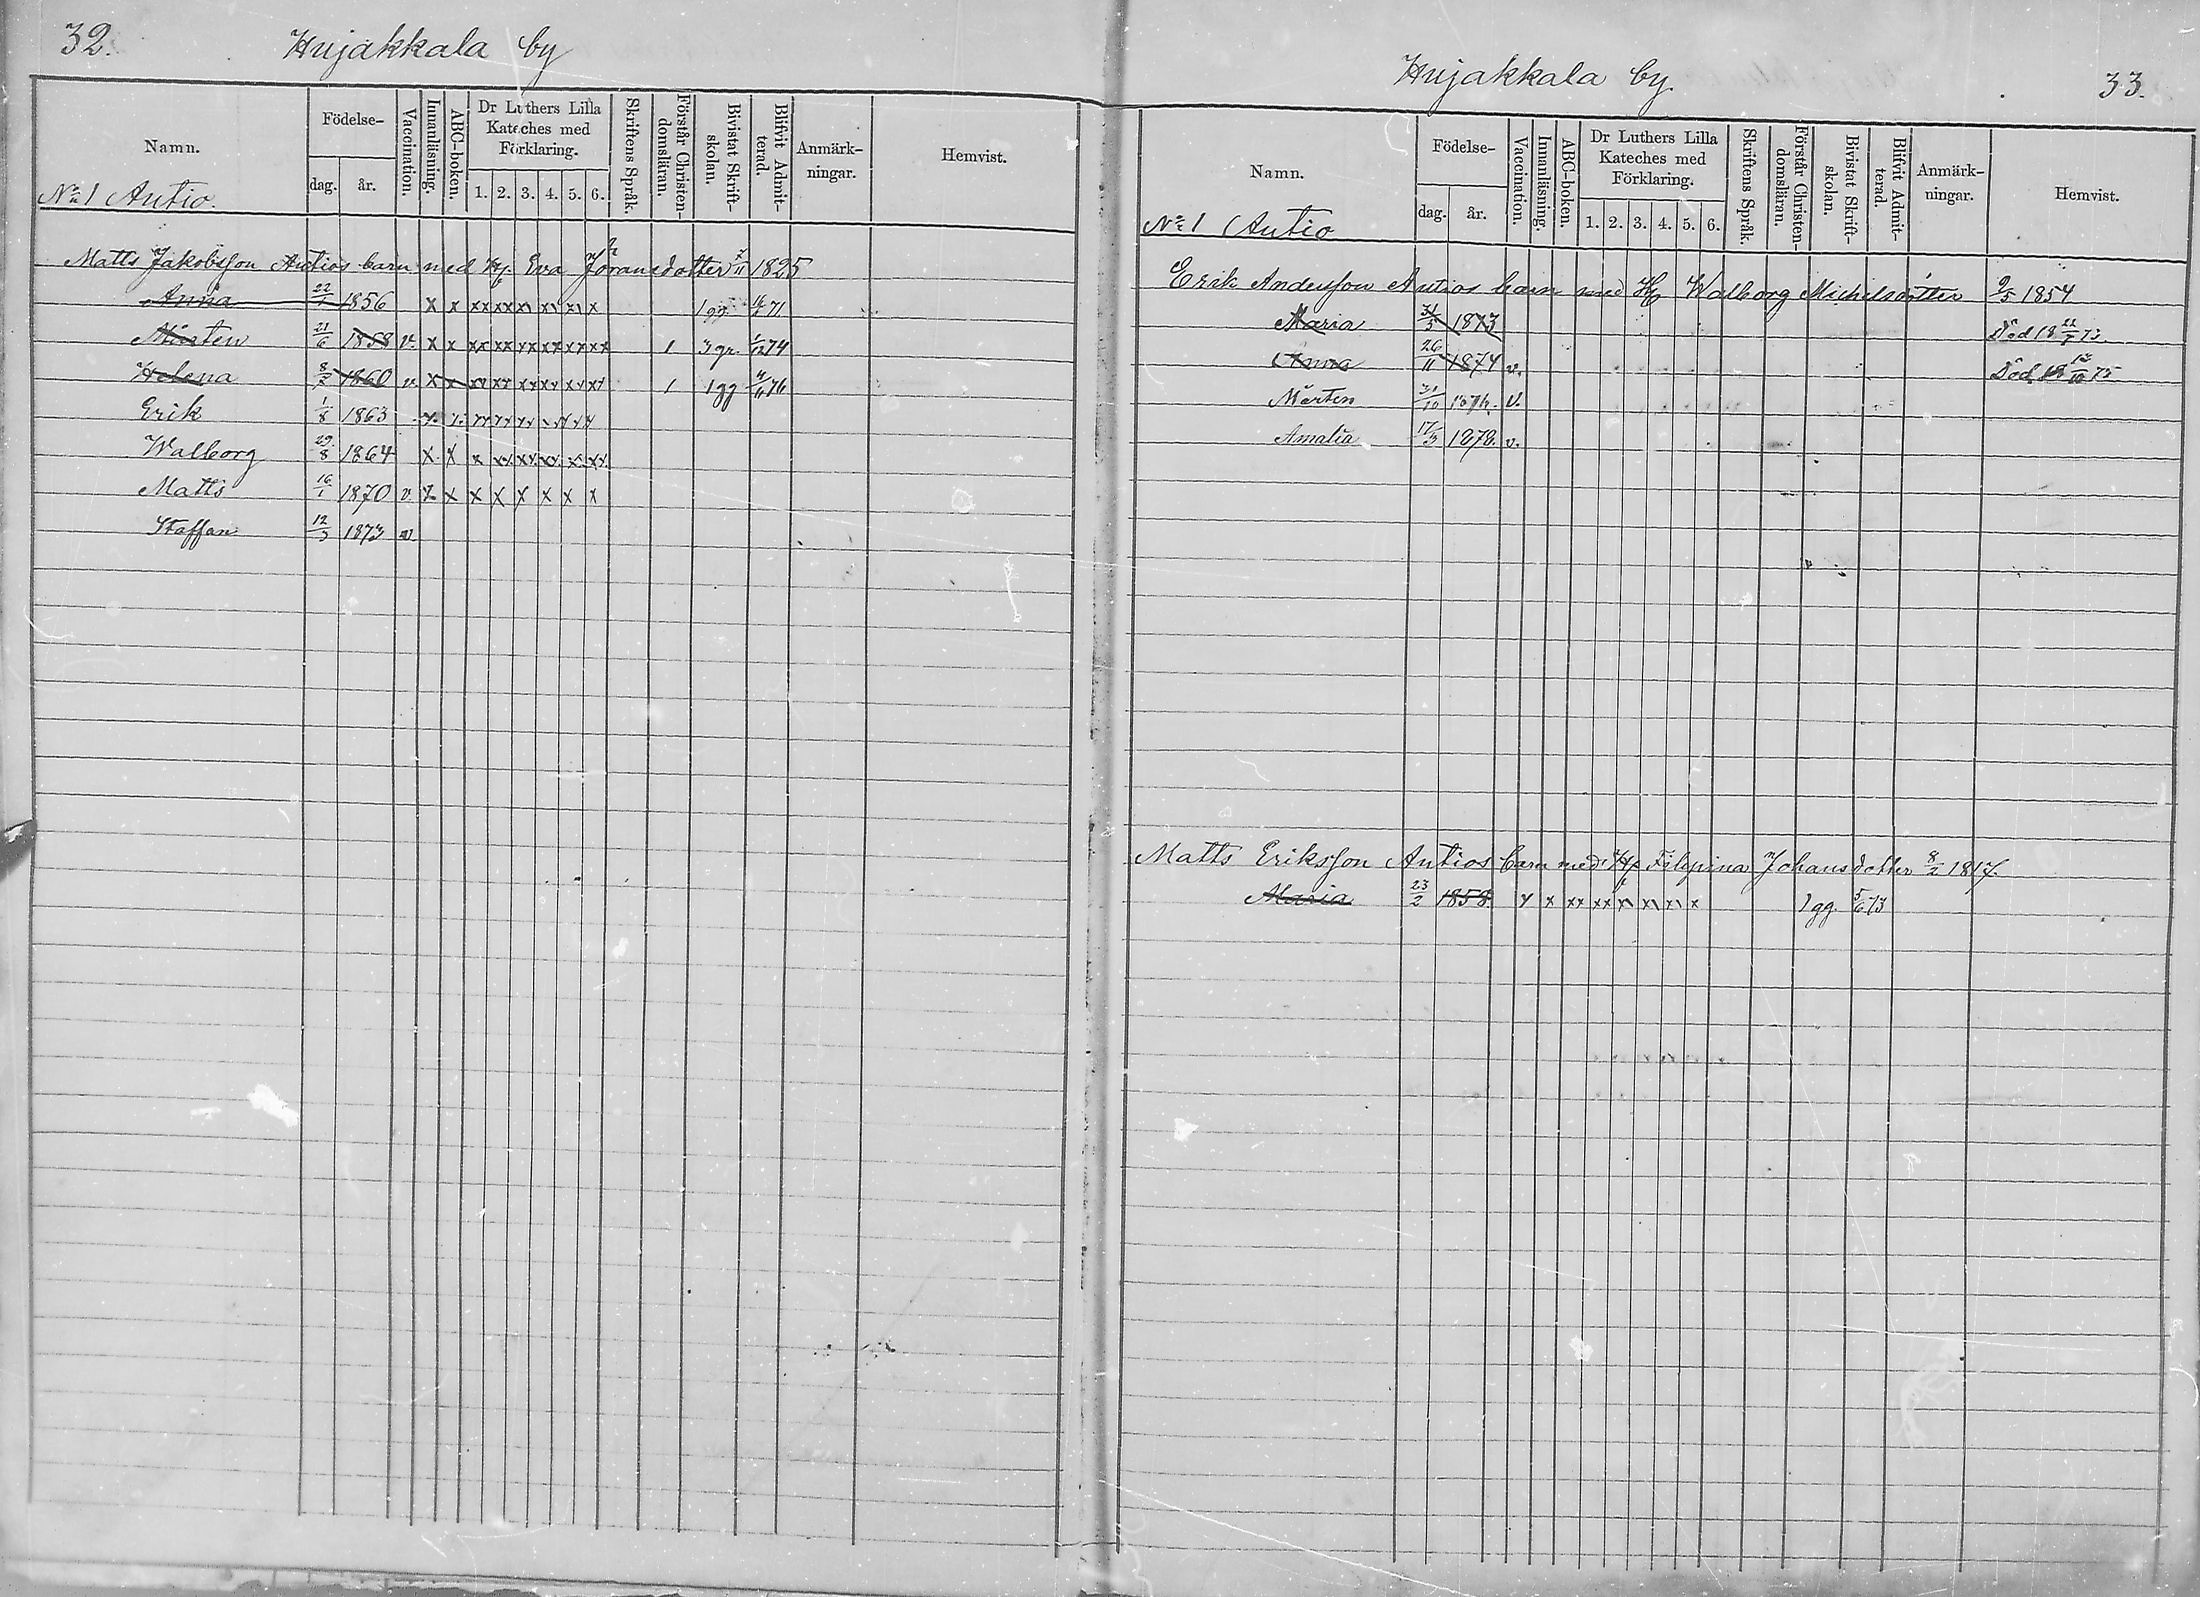 32. Hujakkala by
Namn. Födelse- dag. år. Vaccination. Innanläsning. ABC-boken. Dr Luthers Lilla Kateches med Förklaring. 1. 2. 3. 4. 5. 6. Skriftens Språk. Förstår Christen-domsläran. Bivistat Skrift-skolan. Blifvit Admit-terad. Anmärk-ningar. Hemvist.
No 1 Antio.
Matts Jakobsson Antios barn med Hu. Eva Joransdotter 1825
Anna 22/1 1856 x x xx xx xx xx xx x 1 gg 71
Mårten 21/6 1858 v. x x xx xx xx xx xx xx 1 3 gr. 74
Helena 8/2 1860 v. x x xx xx xx xx xx xx 1 1 gg 76
Erik 1/8 1863
Walborg 29/8 1864 x x x xx xx xx xx xx
Matts 16/1 1870 v. x x x x x x x x
Staffan 12/3 1873 v
Hujakkala by. 33.
Namn. Födelse- dag. år. Vaccination. Innanläsning. ABC-boken. Dr Luthers Lilla Kateches med Förklaring. 1. 2. 3. 4. 5. 6. Skriftens Språk. Förstår Christen-domsläran. Bivistat Skrift-skolan. Blifvit Admit-terad. Anmärk-ningar. Hemvist.
No 1 Antio
Erik Andersson Antios barn med Hu Walborg Michelsdotter 9/5 1854
Maria 31/5 1873 Död 18
Anna 26/11 1874 v. Död 75
Mårten 31/10 v.
Amalia 17/3 1878. v.
Matts Eriksson Antios barn med Hu Filipina Johansdotter 8/2 1817.
Maria 23/2 1858 x x xx xx xx xx x 1 gg. 5/6 73